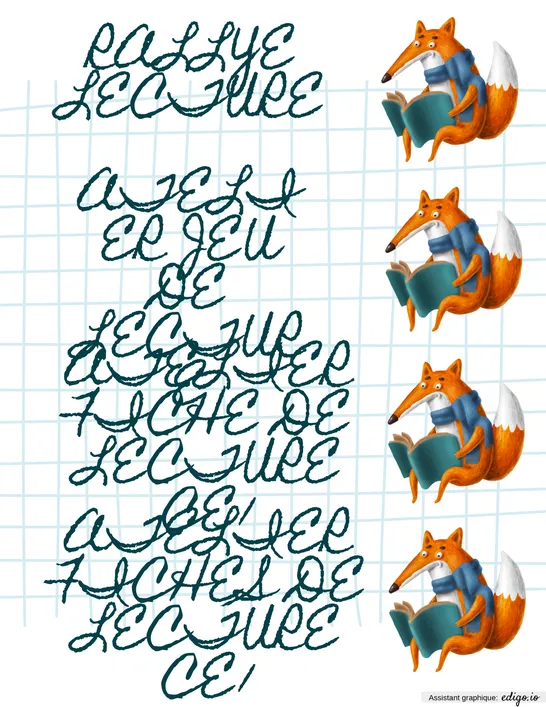 RALLYE
LECTURE
ATELI
ER JEU
DE
LECTUR
E
ATELIER
FICHE DE
LECTURE
CE1
ATELIER
FICHES DE
LECTURE
CE1
Assistant graphique: edigo.io